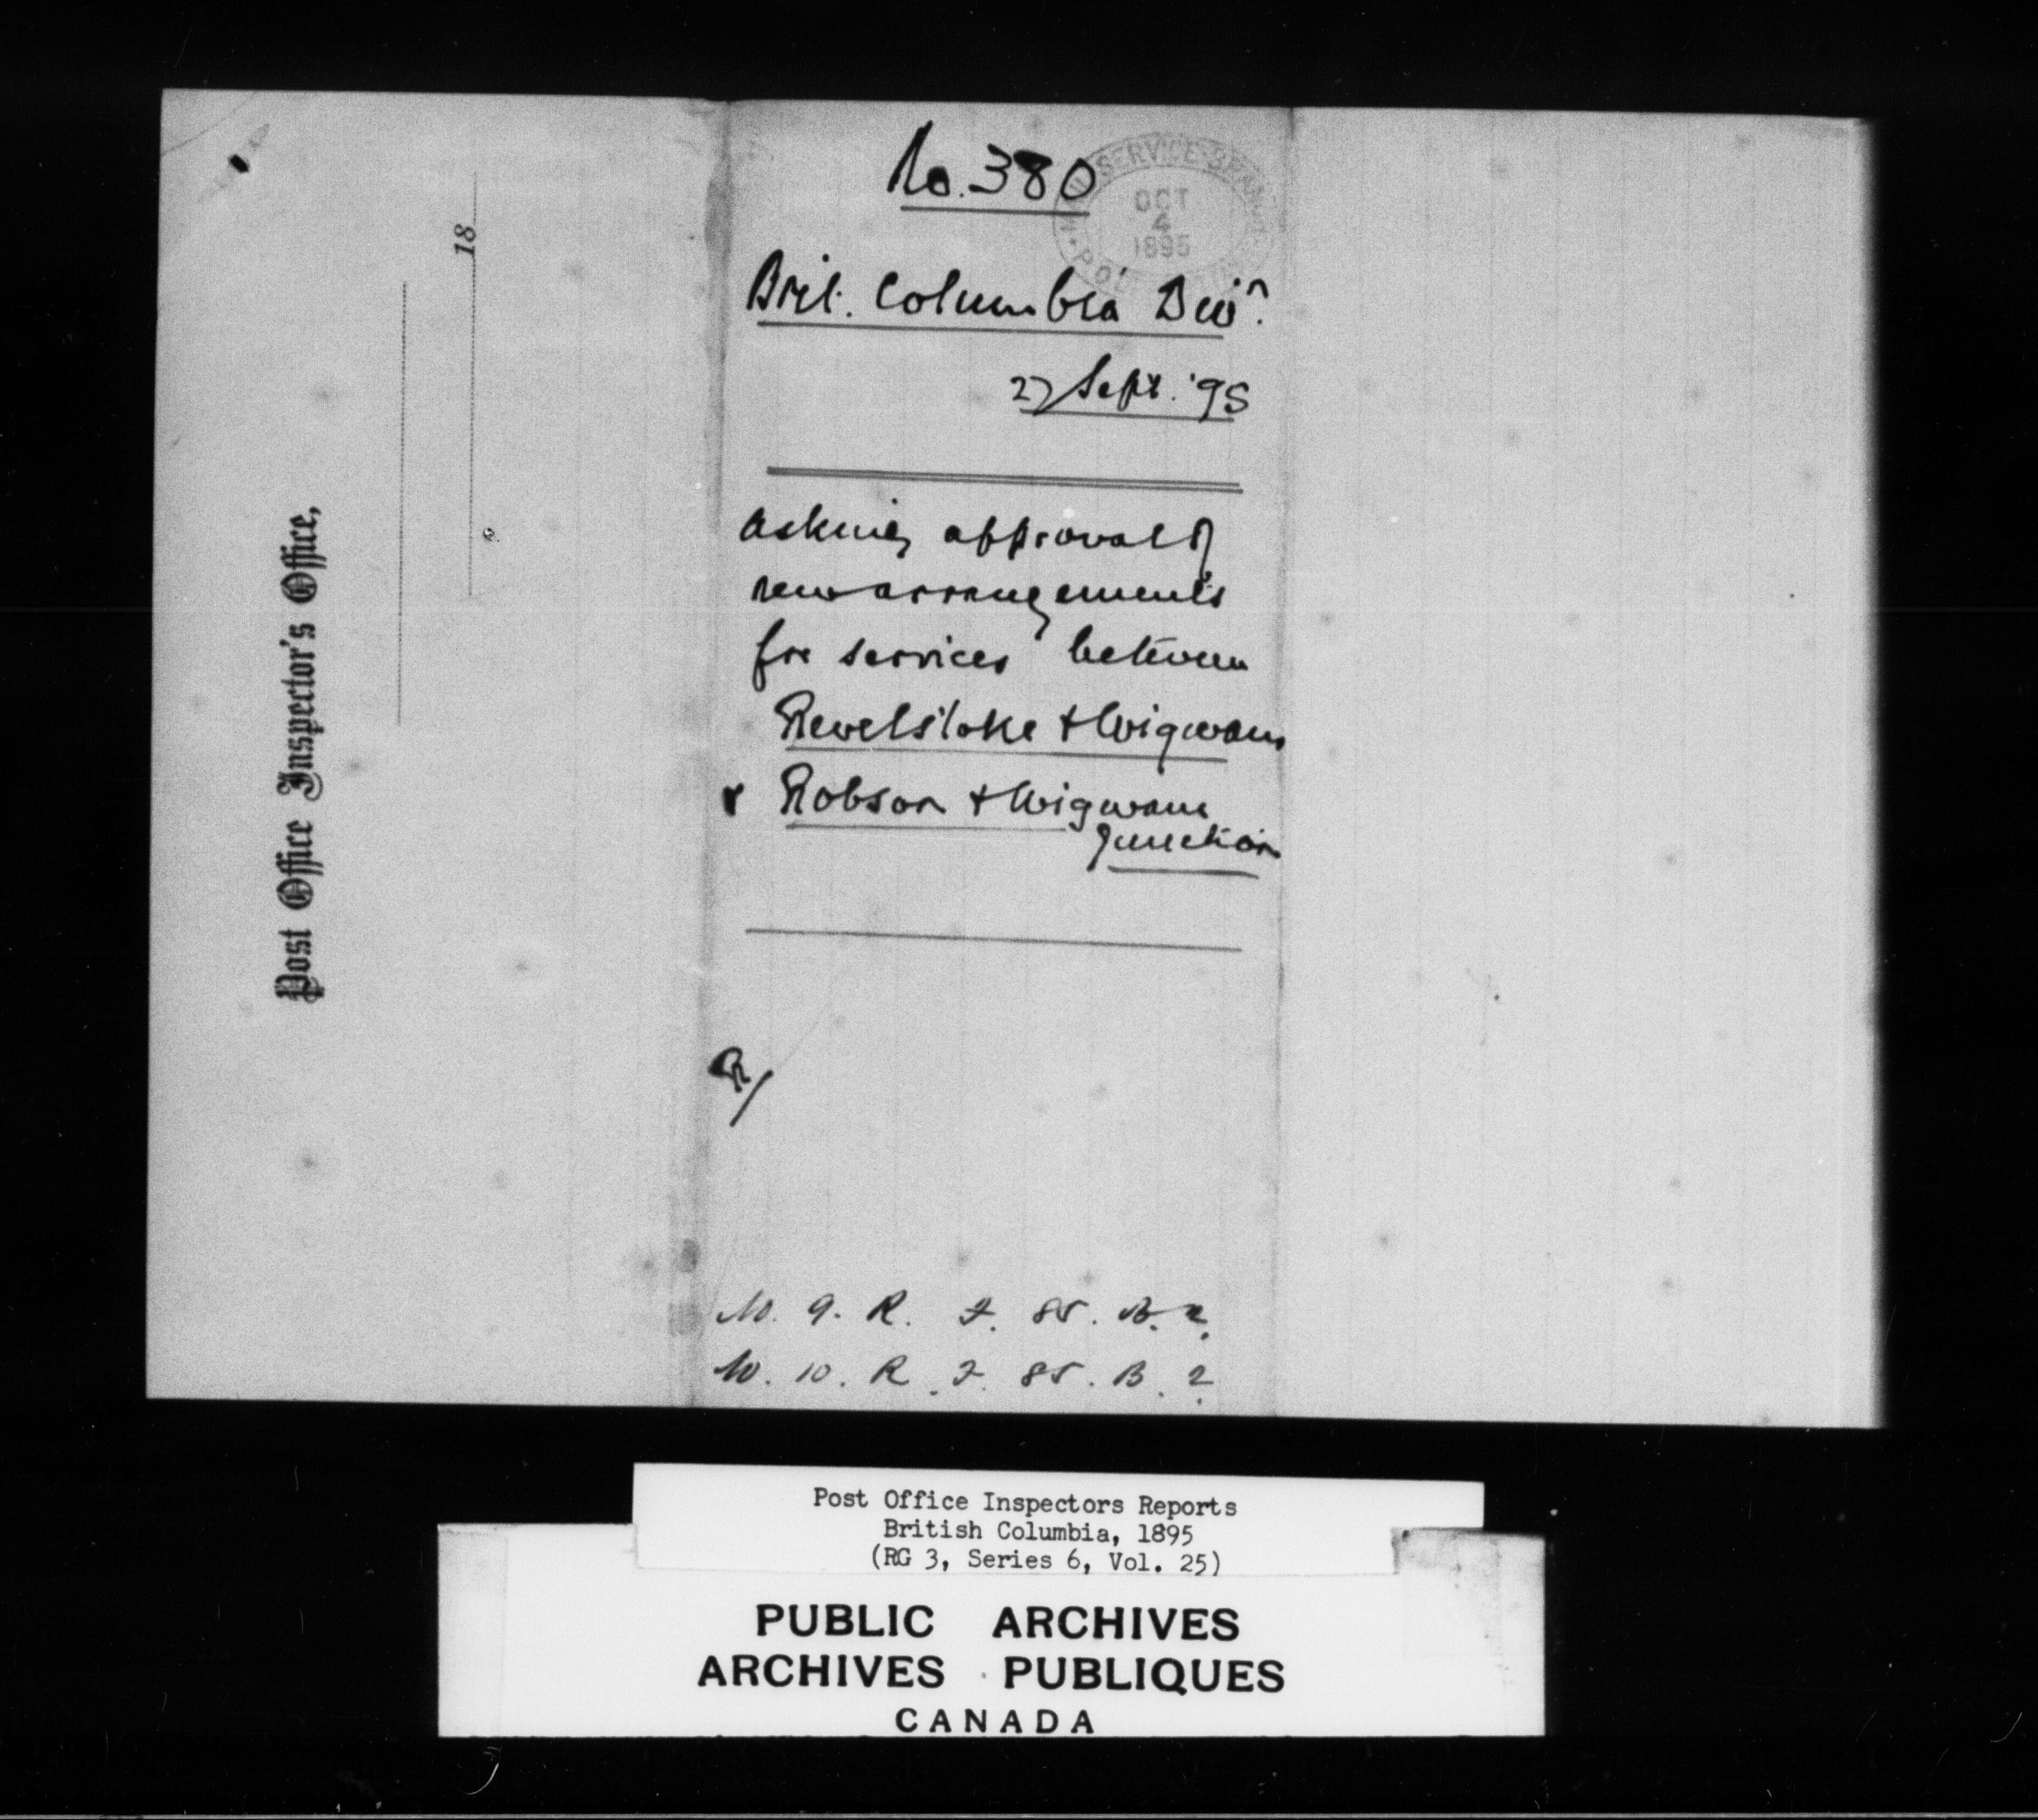 Post Office Inspector's Office,
18
No. 380
MAIL SERVICE BRANCH
OCT
4
1895
Brit. Columbia Divn.
27 Sept. '95
asking approval of
new arrangements
for services between
Revelstoke & Wigwam
& Robson & Wigwam
Junction
R/
M. 9. R. F. 85. B. 2.
M. 10. R. F. 85. B. 2.
Post Office Inspectors Reports
British Columbia, 1895
(RG 3, Series 6, Vol. 25)
PUBLIC ARCHIVES
ARCHIVES PUBLIQUES
CANADA